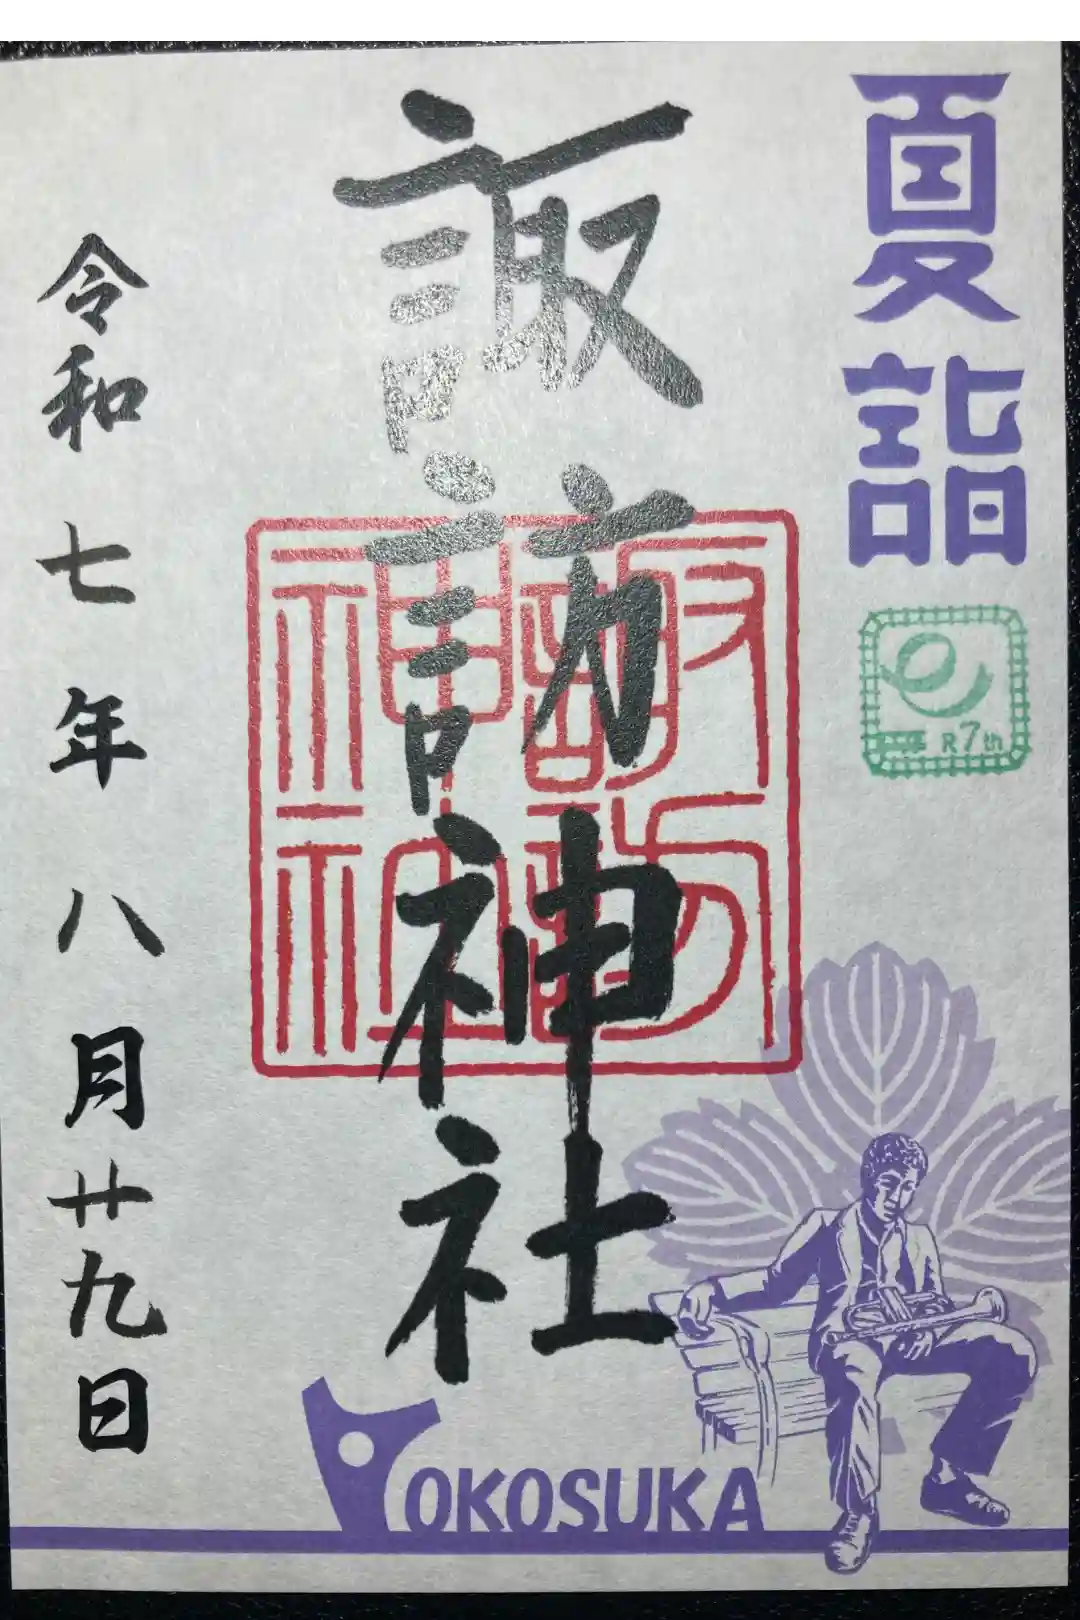 夏詣
R7th
諏訪神社
諏訪
神社
令和七年八月廿九日
YOKOSUKA